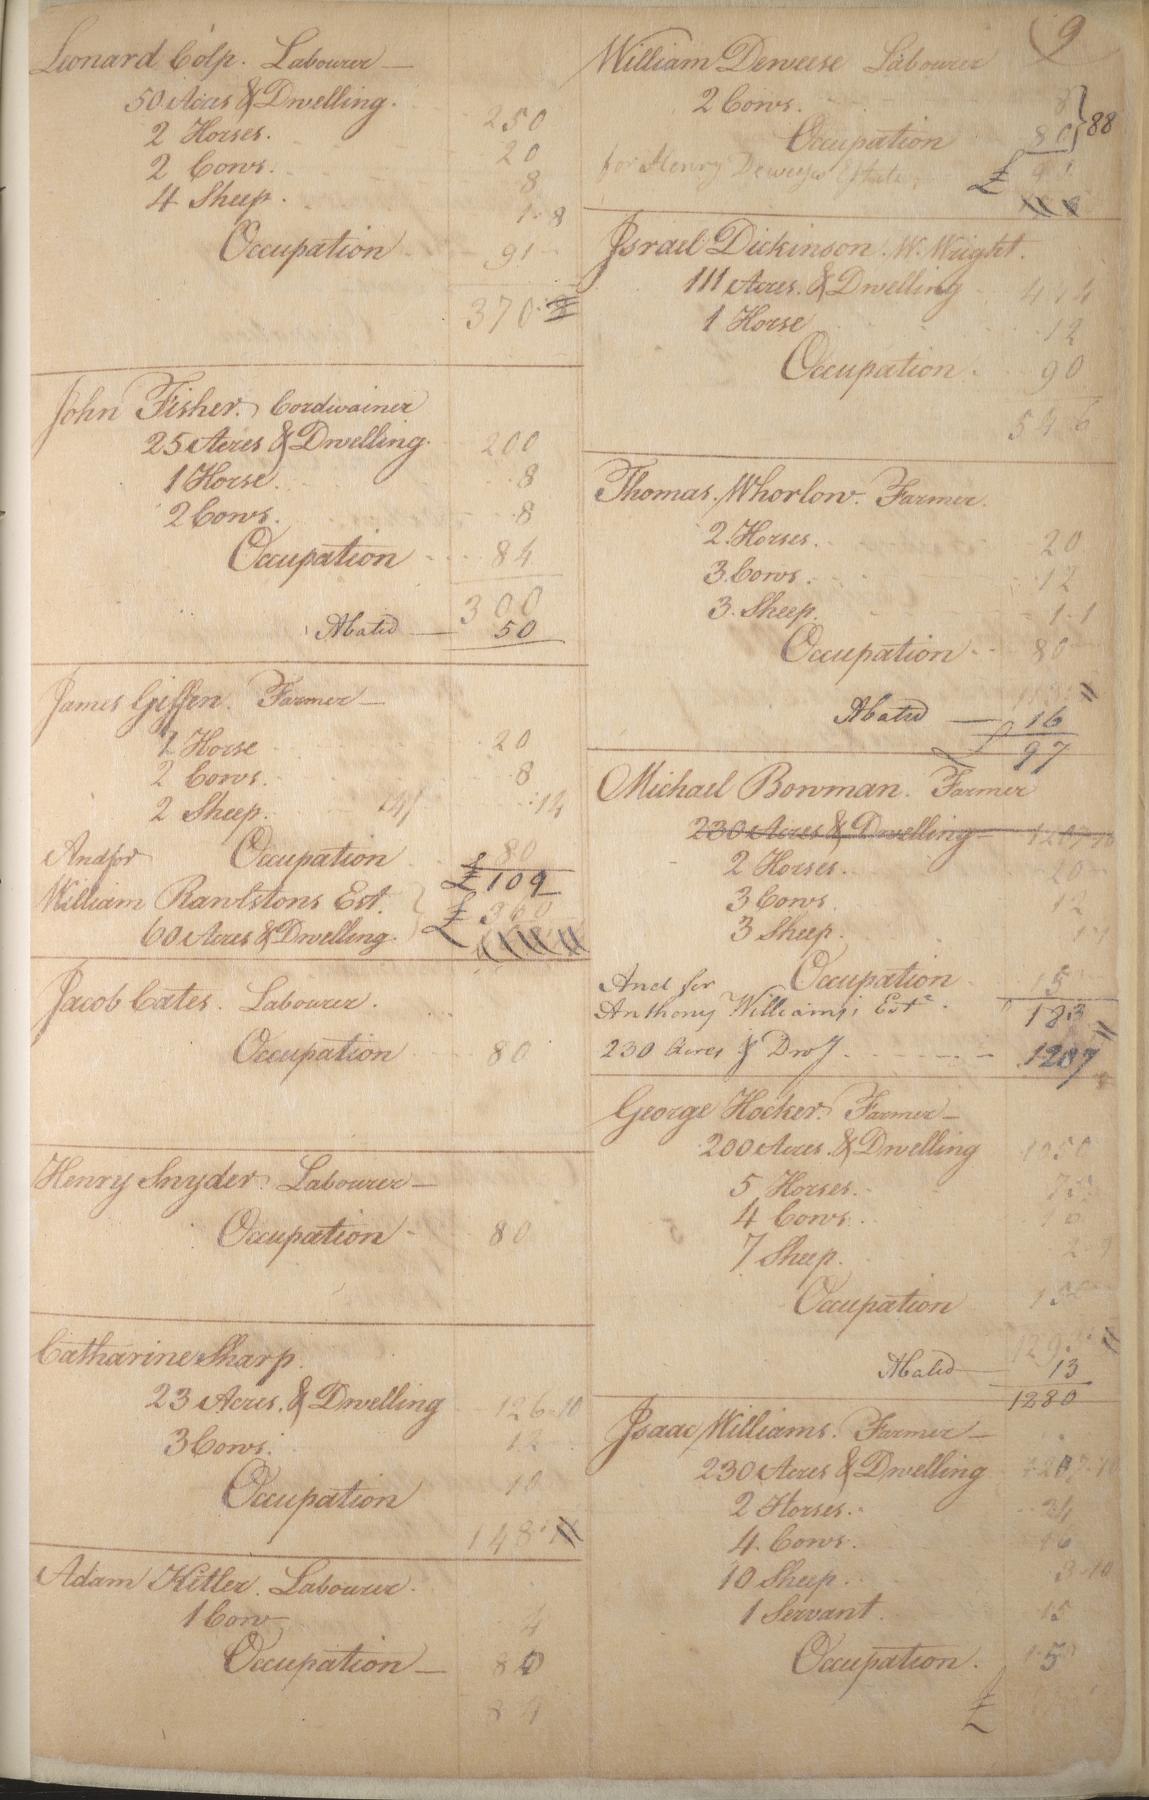 Leonard Colp. Labourer —
50 Acres & Dwelling. 250
2 Horses. 20
2 Cows. 8
4 Sheep. 1.8
Occupation 91
370
John Fisher. Cordwainer
25 Acres & Dwelling. 200
1 Horse. 8
2 Cows. 8
Occupation 84
300
Abated — 50
James Giffen. Farmer —
1 Horse 20
2 Cows. 8
2 Sheep. 14/ 14
Occupation 80
£109
And for
William Rawlstons Est. £ 360
60 Acres & Dwelling.
Jacob Cates. Labourer.
Occupation 80
Henry Snyder. Labourer —
Occupation 80
Catharine Sharp.
23 Acres. & Dwelling 126.10
3 Cows. 12
Occupation 10
148
Adam Kitler. Labourer.
1 Cow 4
Occupation — 80
84
9
William Deweese Labourer
2 Cows. 8
Occupation 80 } 88
for Henry Deweyes Estate, £
Israel Dickinson. W. Wright.
111 Acres. & Dwelling 444
1 Horse 12
Occupation. 90
546
Thomas Whorlow. Farmer.
2 Horses. 20
3 Cows. 12
3 Sheep. 1.1
Occupation 80
Abated — 16
£ 97
Michael Bowman. Farmer
230 Acres & Dwelling 1207.10
2 Horses. 20
3 Cows. 12
3 Sheep.
Occupation
183
And for
Anthony Williams's Este.
230 Acres & Dwg. 1207
George Hocker. Farmer —
200 Acres. & Dwelling 1050
5 Horses. 75
4 Cows.
7 Sheep. 2.9
Occupation
129
Abated 13
1280
Isaac Williams. Farmer —
230 Acres & Dwelling 1207.10
2 Horses. 24
4 Cows. 16
10 Sheep. 3.10
1 Servant. 15
Occupation.
£